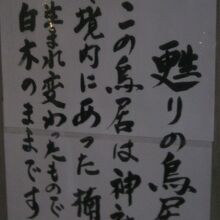 甦りの鳥居
この鳥居は神
境内にあった楠
生まれ変わったもので
白木のままです